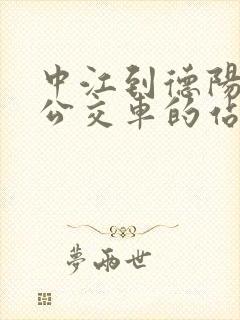 中江到德陽
公交車的佔
夢兩世